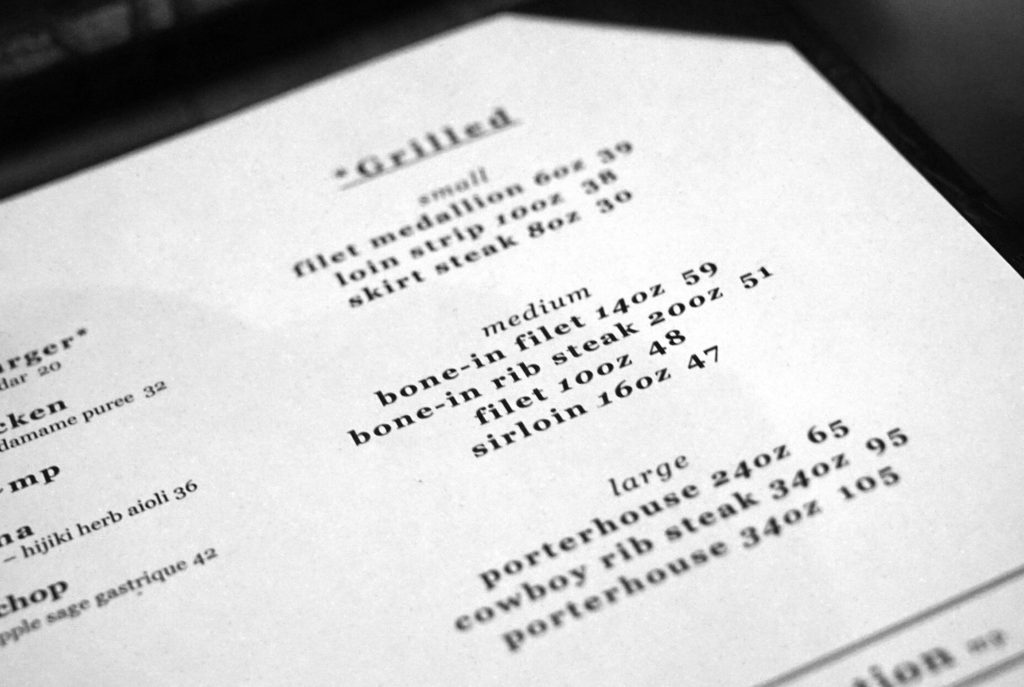 *Grilled
small
filet medallion 6oz 39
loin strip 10oz 38
skirt steak 8oz 30
medium
bone-in filet 14oz 59
bone-in rib steak 20oz 51
filet 10oz 48
sirloin 16oz 47
large
porterhouse 24oz 65
cowboy rib steak 34oz 95
porterhouse 34oz 105
rger*
dar 20
cken
damame puree 32
mp
na
– hijiki herb aioli 36
chop
pple sage gastrique 42
tion